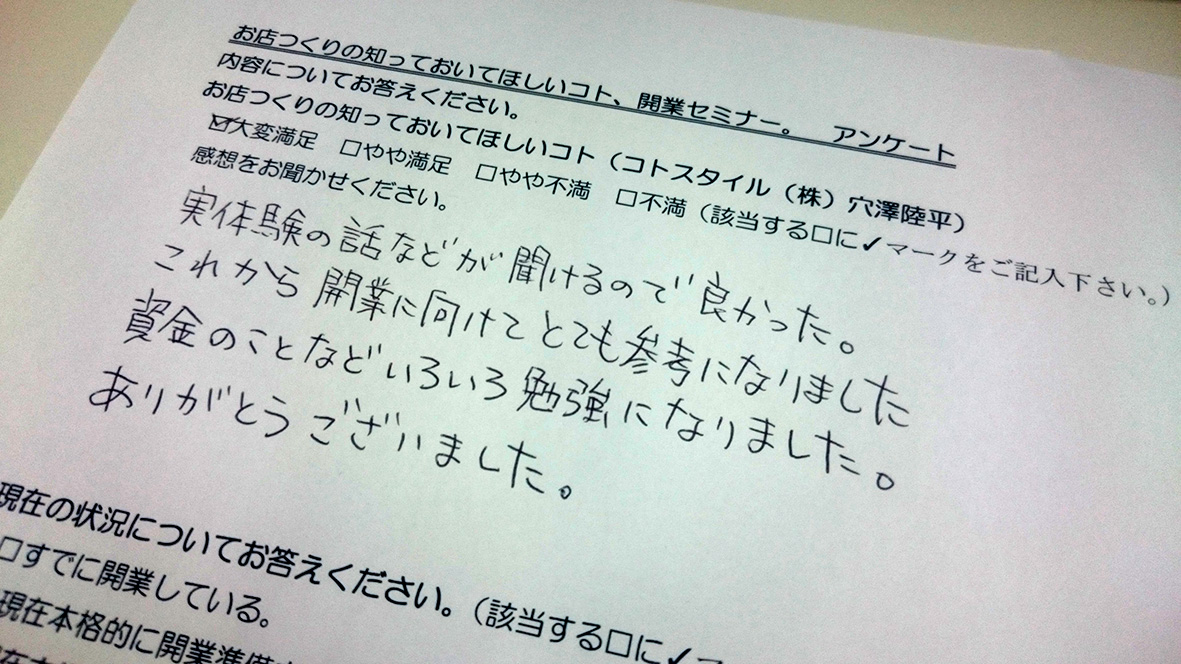 お店つくりの知っておいてほしいコト、開業セミナー。　アンケート
内容についてお答えください。
お店つくりの知っておいてほしいコト（コトスタイル（株）穴澤陸平）
☑大変満足　□やや満足　□やや不満　□不満（該当する□に✓マークをご記入下さい。）
感想をお聞かせください。
実体験の話などが聞けるので良かった。
これから開業に向けてとても参考になりました
資金のことなどいろいろ勉強になりました。
ありがとうございました。
現在の状況についてお答えください。（該当する□に✓マ
□すでに開業している。
現在本格的に開業準備